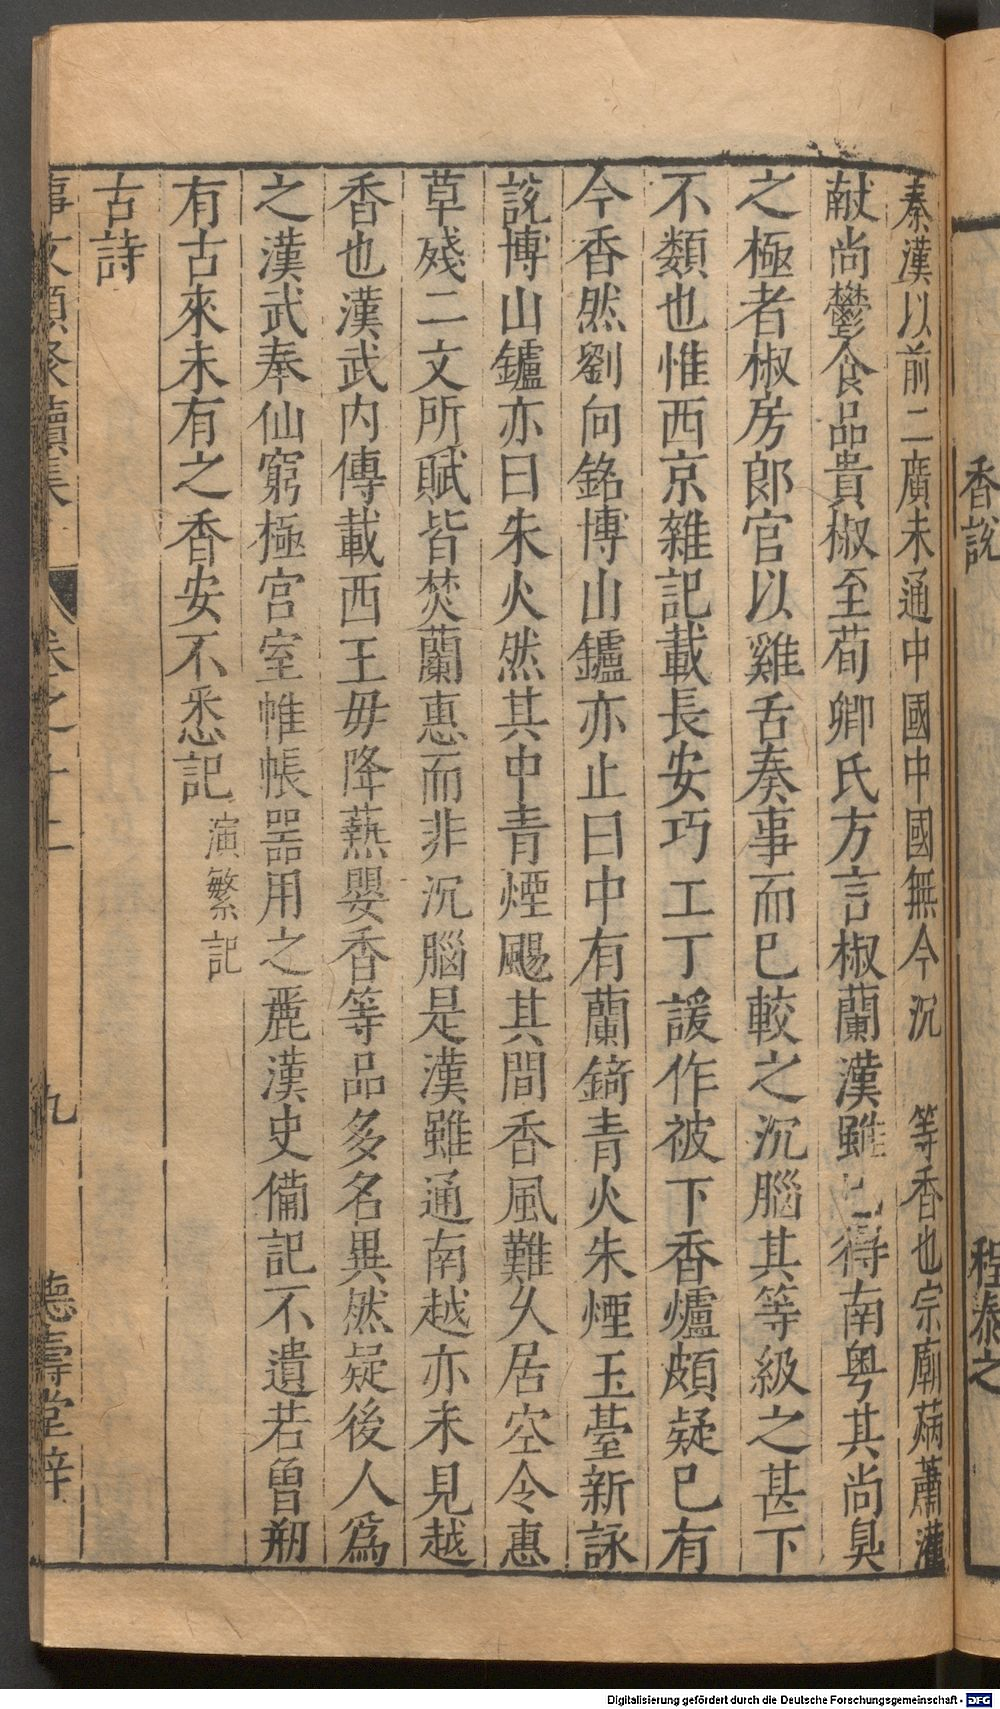 香說
程泰之
秦漢以前二廣未通中國中國無今沉 等香也宗廟焫蕭灌
献尚鬱食品貴椒至荀卿氏方言椒蘭漢雖已得南粤其尚臭
之極者椒房郎官以雞舌奏事而已較之沉腦其等級之甚下
不類也惟西京雜記載長安巧工丁諼作被下香爐頗疑已有
今香然劉向銘博山鑪亦止曰中有蘭錡青火朱煙玉䑓新詠
說博山鑪亦曰朱火然其中青煙颺其間香風難久居空令惠
草殘二文所賦皆焚蘭惠而非沉腦是漢雖通南越亦未見越
香也漢武内傳載西王毋降爇嬰香等品多名異然疑後人爲
之漢武奉仙窮極宫室帷帳器用之麗漢史備記不遺若曾剏
有古來未有之香安不悉記 演繁記
古詩
事文類聚續集 卷之十二 九 德壽堂梓
Digitalisierung gefördert durch die Deutsche Forschungsgemeinschaft - DFG